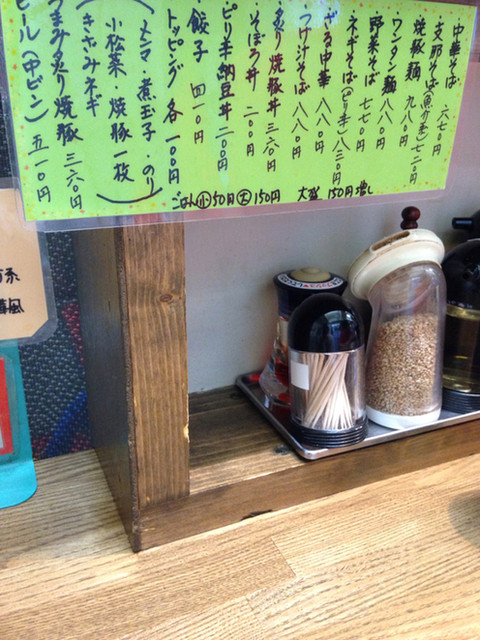 ・中華そば 六七〇円
・支那そば(魚介素)七二〇円
焼豚麺 九八〇円
ワンタン麺 八八〇円
野菜そば 七七〇円
ネギそば(ピリ辛)八二〇円
ざる中華 八八〇円
つけ汁そば 八八〇円
・炙り焼豚丼 三六〇円
・そぼろ丼 二〇〇円
ピリ辛納豆丼 二〇〇円
・餃子 四一〇円
トッピング各 一〇〇円
(メンマ・煮玉子・のり
小松菜・焼豚一枚
きざみネギ)
つまみ炙り焼豚 三六〇円
ビール(中ビン)五一〇円
ごはん小50円大150円 大盛150円増し